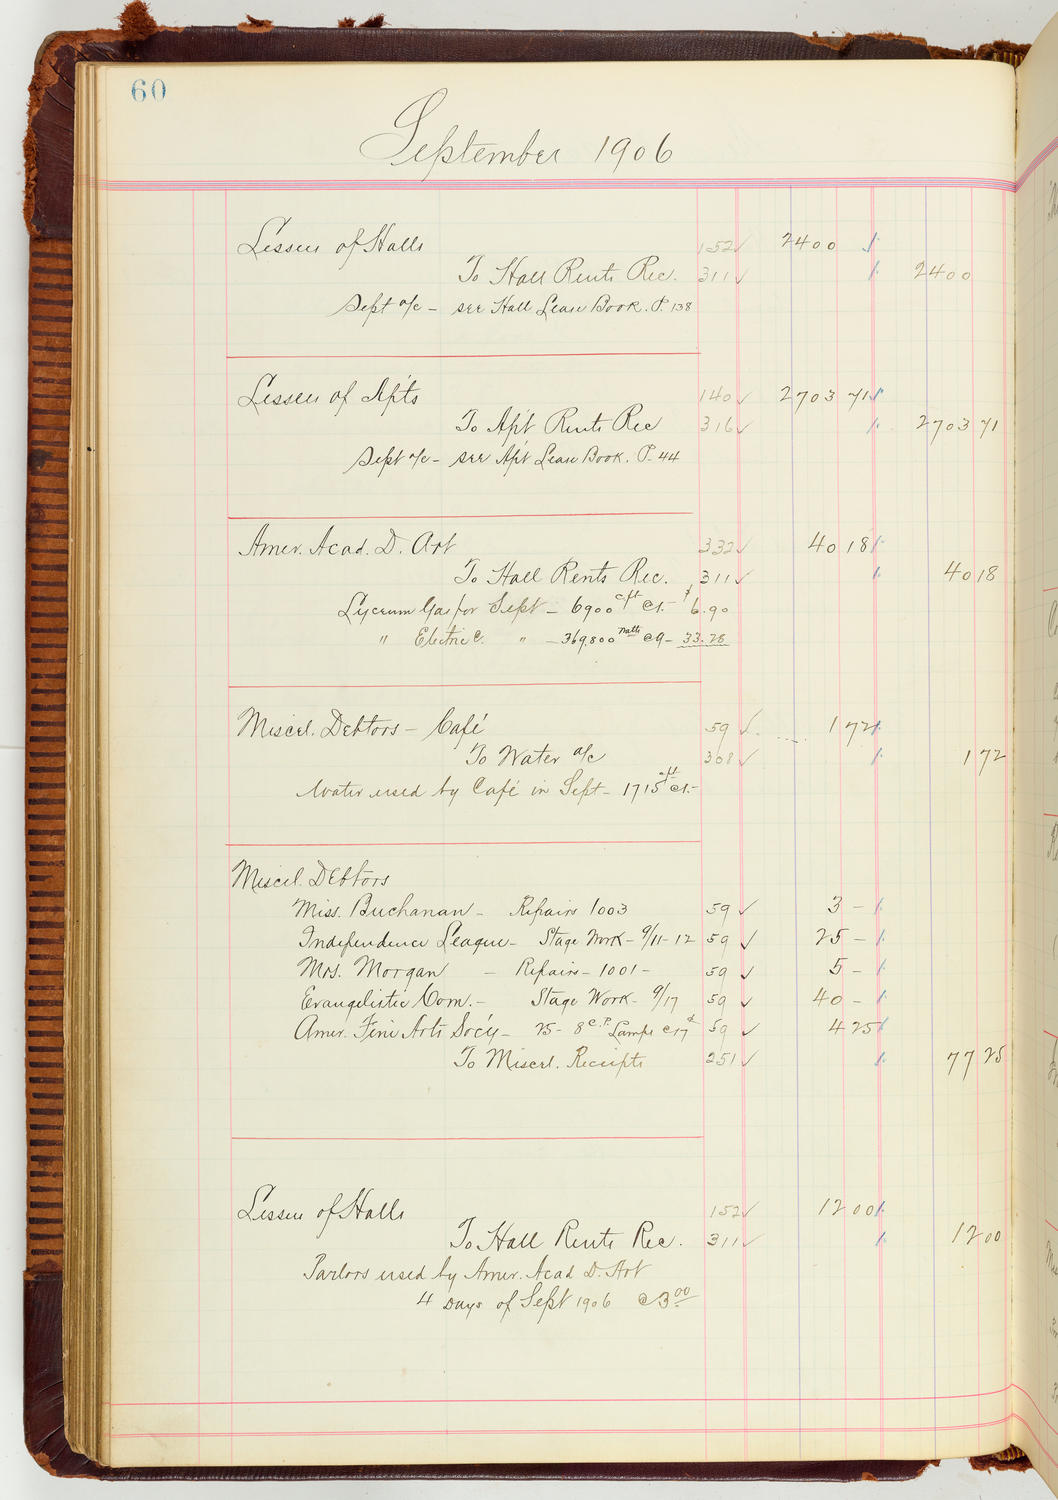 60
September 1906
Lessees of Halls 152 ✓ 2400
To Hall Rents Rec. 311 ✓ 2400
Sept a/c - see Hall Lease Book. P. 138
Lessees of Ap'ts 140 ✓ 2703 71
To Ap't Rents Rec 316 ✓ 2703 71
Sept a/c - see Ap't Lease Book. P. 44
Amer. Acad. D. Art 332 ✓ 40 18
To Hall Rents Rec. 311 ✓ 40 18
Lyceum Gas for Sept - 6900 c.ft @1.- $6.90
" Electric. " - 369.800 watts @9 - 33.28
Miscel. Debtors - Café 59 ✓ 1 72
To Water a/c 308 ✓ 1 72
Water used by Café in Sept - 1715 cft @1.-
Miscel. Debtors
Miss. Buchanan - Repairs 1003 59 ✓ 3 -
Independence League - Stage Work - 9/11-12 59 ✓ 25 -
Mrs. Morgan - Repairs - 1001 - 59 ✓ 5 -
Evangelistic Com. - Stage Work - 9/17 59 ✓ 40 -
Amer. Fine Arts Soc'y - 25 - 8 C.P. Lamps @17¢ 59 ✓ 4 25
To Miscel. Receipts 251 ✓ 77 25
Lessees of Halls 152 ✓ 12 00
To Hall Rents Rec. 311 ✓ 12 00
Parlors used by Amer. Acad D. Art
4 Days of Sept 1906 @ 3 00